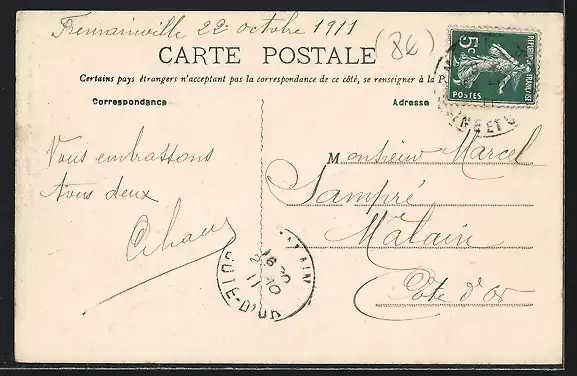 Fremainville 22 octobre 1911
(86)
CARTE POSTALE
Certains pays étrangers n'acceptant pas la correspondance de ce côté, se renseigner à la P
Correspondance
Adresse
5c
POSTES
REPUBLIQUE FRANÇAISE
SEINE ET O
Vous embrassons
tous deux
Monsieur Marcel
Sampré
Mâlain
Côte d'Or
MALAIN
18 30
22 10
11
COTE-D'OR